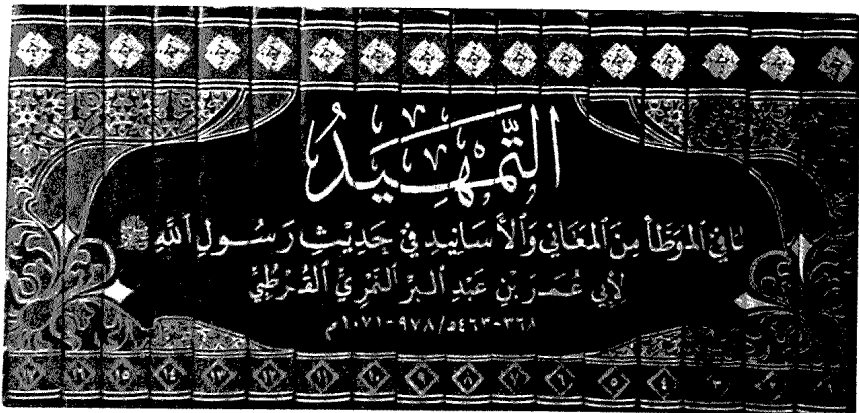 التَّمْهِيدُ
لما في الموَطَّأ مِنَ المَعَاني وَالأَسَانِيدِ في حَدِيثِ رَسُولِ اللَّهِ ﷺ
لِأَبي عُمَرَ بْنِ عَبْدِ البَرِّ النَّمَرِيِّ القُرْطُبِيِّ
٣٦٨-٤٦٣هـ/٩٧٨-١٠٧١م
١ ٢ ٣ ٤ ٥ ٦ ٧ ٨ ٩ ١٠ ١١ ١٢ ١٣ ١٤ ١٥ ١٦